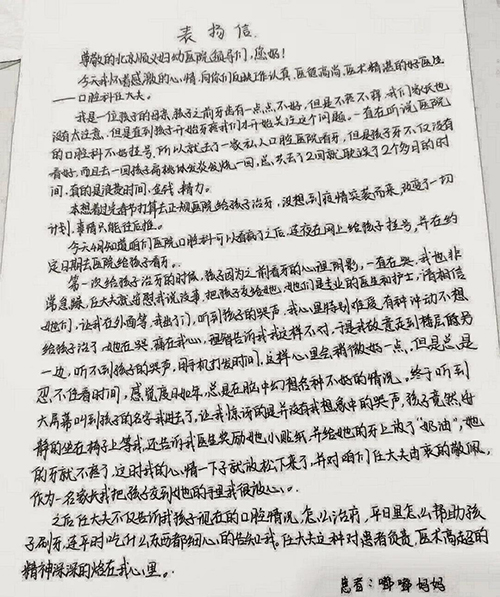 表扬信
尊敬的北京顺义妇幼医院领导们,您好!
今天我怀着感激的心情,向你们反映工作认真、医德高尚、医术精湛的好医生
——口腔科任大夫。
我是一位孩子的母亲,孩子之前牙齿有一点点不好,但是不疼不痒,我们家长也
没有太注意,但是直到孩子开始牙疼我们才开始关注这个问题。一直在听说医院
的口腔科不好挂号,所以就去了一家私人口腔医院看牙,但是孩子牙不仅没有
看好,而且去一回孩子扁桃体发炎发烧一回,总共去了2回就耽误了2个多月的时
间,真的是浪费时间、金钱、精力。
本想着过完春节打算去正规医院给孩子治牙,没想到疫情突袭而来,改变了一切
计划,事情只能往后推。
今天4月知道咱们医院口腔科可以看病了之后,连夜在网上给孩子挂号,并在约
定日期去医院给孩子看牙。
第一次给孩子治牙的时候,孩子因为之前看牙的心理阴影,一直在哭,我也非
常急躁,任大夫就安慰我说没事,把孩子交给她,她们是专业的医生和护士,请相信
她们,让我在外面等,我出了门,听到孩子的哭声,我心里特别难受,有种冲动不想
给孩子治了,她在哭,痛在我心,理智告诉我我这样不对,于是我故意走到楼层的另
一边,听不到孩子的哭声,用手机打发时间,这样心里会稍微好一点,但是总是
忍不住看时间,感觉度日如年,总是在脑中幻想各种不好的情况。终于听到
大屏幕叫到孩子的名字我进去了,让我惊讶的是并没有我想象中的哭声,孩子竟然安
静的坐在椅子上等我,还告诉我医生奖励她小贴纸,并给她的牙上放了"奶油",她
的牙就不疼了,这时我的心情一下子就放松下来了,并对咱们任大夫由衷的敬佩,
作为一名家长我把孩子交到她的手里我很放心。
之后任大夫不仅告诉我孩子现在的口腔情况,怎么治疗,平日里怎么帮助孩
子刷牙,连平时吃什么东西都细心的告知我。任大夫这种对患者负责,医术高超的
精神深深的烙在我心里。
患者:嘟嘟妈妈